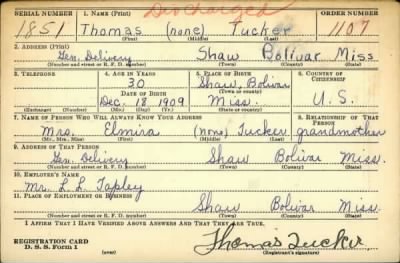 SERIAL NUMBER 1. NAME (Print) Discharged ORDER NUMBER
1851 Thomas (none) Tucker 1107
(First) (Middle) (Last)
2. ADDRESS (Print)
Gen. Delivery Shaw Bolivar Miss
(Number and street or R. F. D. number) (Town) (County) (State)
3. TELEPHONE 4. AGE IN YEARS 5. PLACE OF BIRTH 6. COUNTRY OF CITIZENSHIP
30 Shaw, Bolivar
DATE OF BIRTH (Town or county)
Dec. 18 1909 Miss. U.S.
(Exchange) (Number) (Mo.) (Day) (Yr.) (State or country)
7. NAME OF PERSON WHO WILL ALWAYS KNOW YOUR ADDRESS 8. RELATIONSHIP OF THAT PERSON
Mrs. Elmira (none) Tucker grandmother
(Mr., Mrs., Miss) (First) (Middle) (Last)
9. ADDRESS OF THAT PERSON
Gen. Delivery Shaw Bolivar Miss.
(Number and street or R. F. D. number) (Town) (County) (State)
10. EMPLOYER'S NAME
Mr. L. L. Tapley
11. PLACE OF EMPLOYMENT OR BUSINESS
Shaw Bolivar Miss.
(Number and street or R. F. D. number) (Town) (County) (State)
I AFFIRM THAT I HAVE VERIFIED ABOVE ANSWERS AND THAT THEY ARE TRUE.
REGISTRATION CARD Thomas Tucker
D. S. S. Form 1 (Registrant's signature)